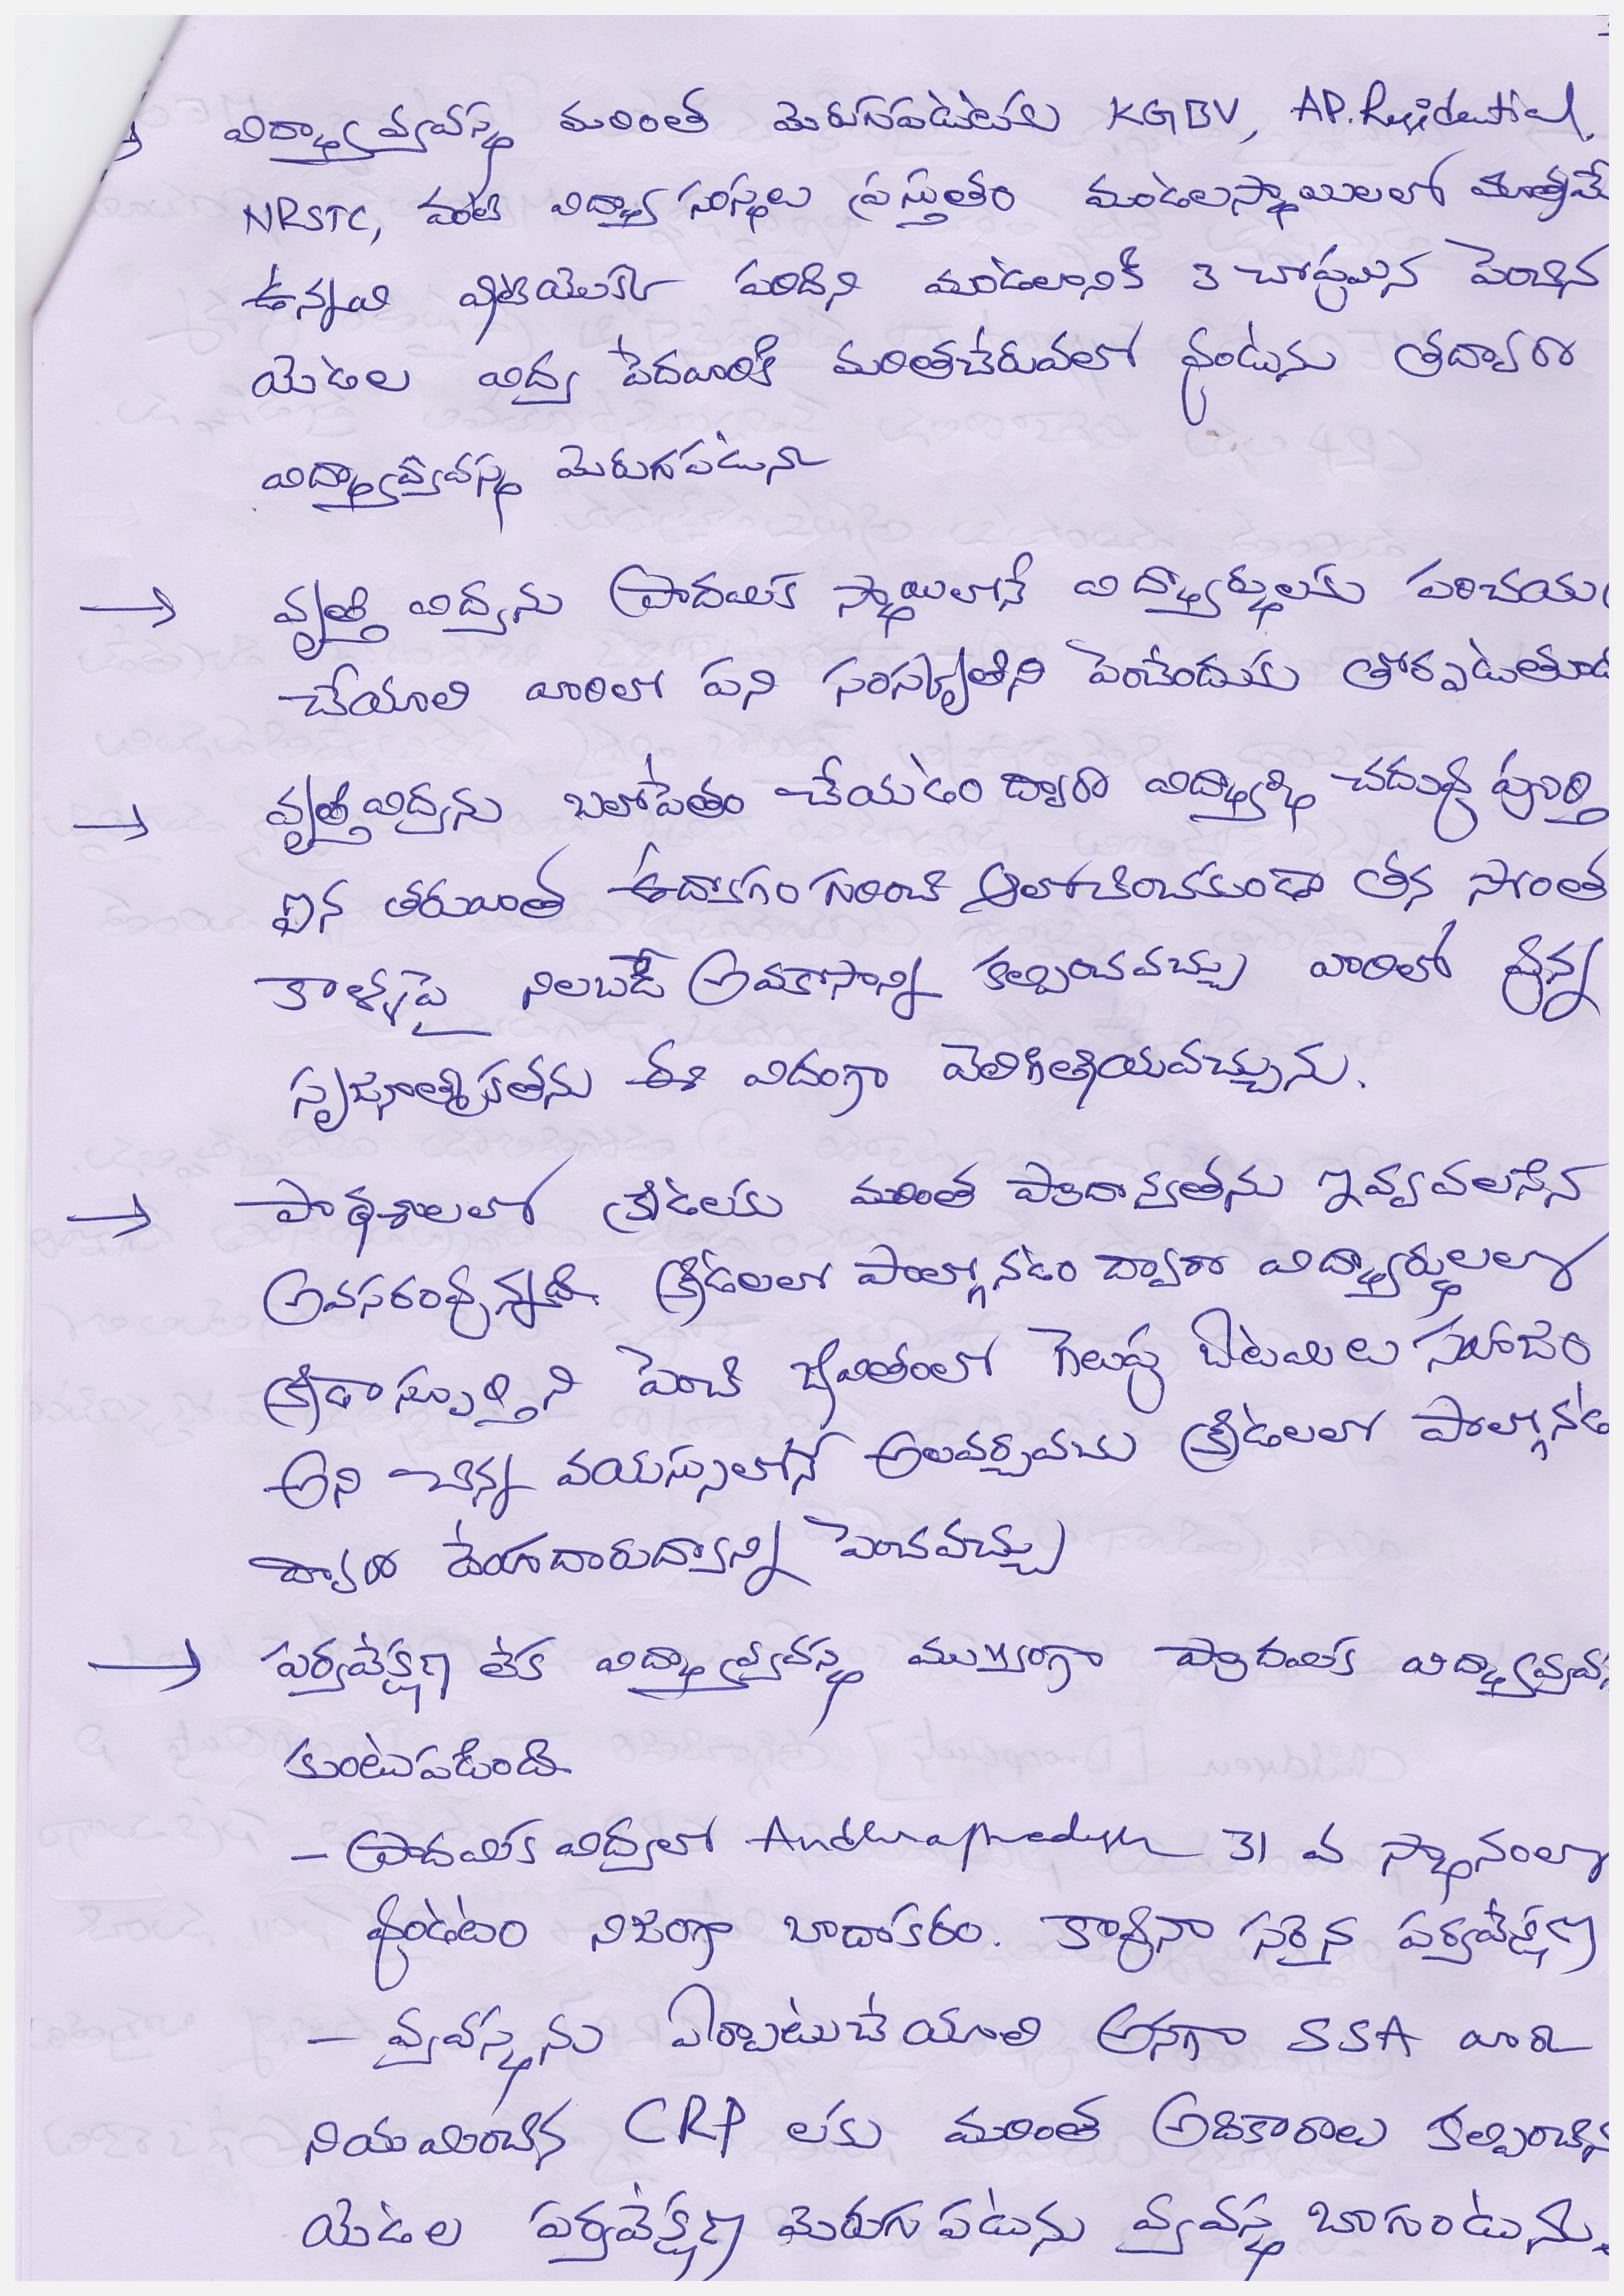 → విద్యా వ్యవస్థ మరింత మెరుగుపడుటకు KGBV, AP. Residential,
NRSTC, వంటి విద్యా సంస్థలు ప్రస్తుతం మండలస్థాయిలలో మాత్రమే
ఉన్నవి వీటియొక్క పరిదిని మండలానికి 3 చొప్పున పెంచిన
యెడల విద్య పేదవారికి మరింతచేరువలో వుండును తద్వారా
విద్యావ్యవస్థ మెరుగుపడును
→ వృత్తి విద్యను ప్రాదమిక స్థాయిలోనే విద్యార్థులకు పరిచయం
చేయాలి వారిలో పని సంస్కృతిని పెంచేందుకు తోర్పడుతుంది
→ వృత్తివిద్యను బలోపేతం చేయడం ద్వారా విద్యార్థి చదువు పూర్తి
ఐన తరువాత ఉద్యోగం గురించి ఆలోచించకుండా తన సొంత
కాళ్ళపై నిలబడే అవకాసాన్ని కల్పించవచ్చు వారిలో వున్న
సృజనాత్మకతను ఈ విదంగా వెలికితీయవచ్చును.
→ పాఠశాలలో క్రీడలకు మరింత ప్రాదాన్యతను ఇవ్వవలసిన
అవసరంవున్నది. క్రీడలలో పాల్గొనడం ద్వారా విద్యార్థులలో
క్రీడాస్పూర్తిని పెంచి జీవితంలో గెలుపు ఓటమిలు సహజం
అని చిన్న వయస్సులోనే అలవర్చవచు క్రీడలలో పాల్గొనడం
ద్వారా దేహదారుద్యాన్ని పెంచవచ్చు
→ పర్యవేక్షణ లేక విద్యావ్యవస్థ ముఖ్యంగా ప్రాదమిక విద్యావ్యవస్థ
కుంటుపడింది
– ప్రాదమిక విద్యలో Andhrapradesh 31 వ స్థానంలో
వుండటం నిజంగా బాదాకరం. కావునా సరైన పర్యవేక్షణ
– వ్యవస్థను ఏర్పాటుచేయాలి అనగా SSA వారి
నియమించిన CRP లకు మరింత అదికారాలు కల్పించిన
యెడల పర్యవేక్షణ మెరుగుపడును వ్యవస్థ బాగుండును.